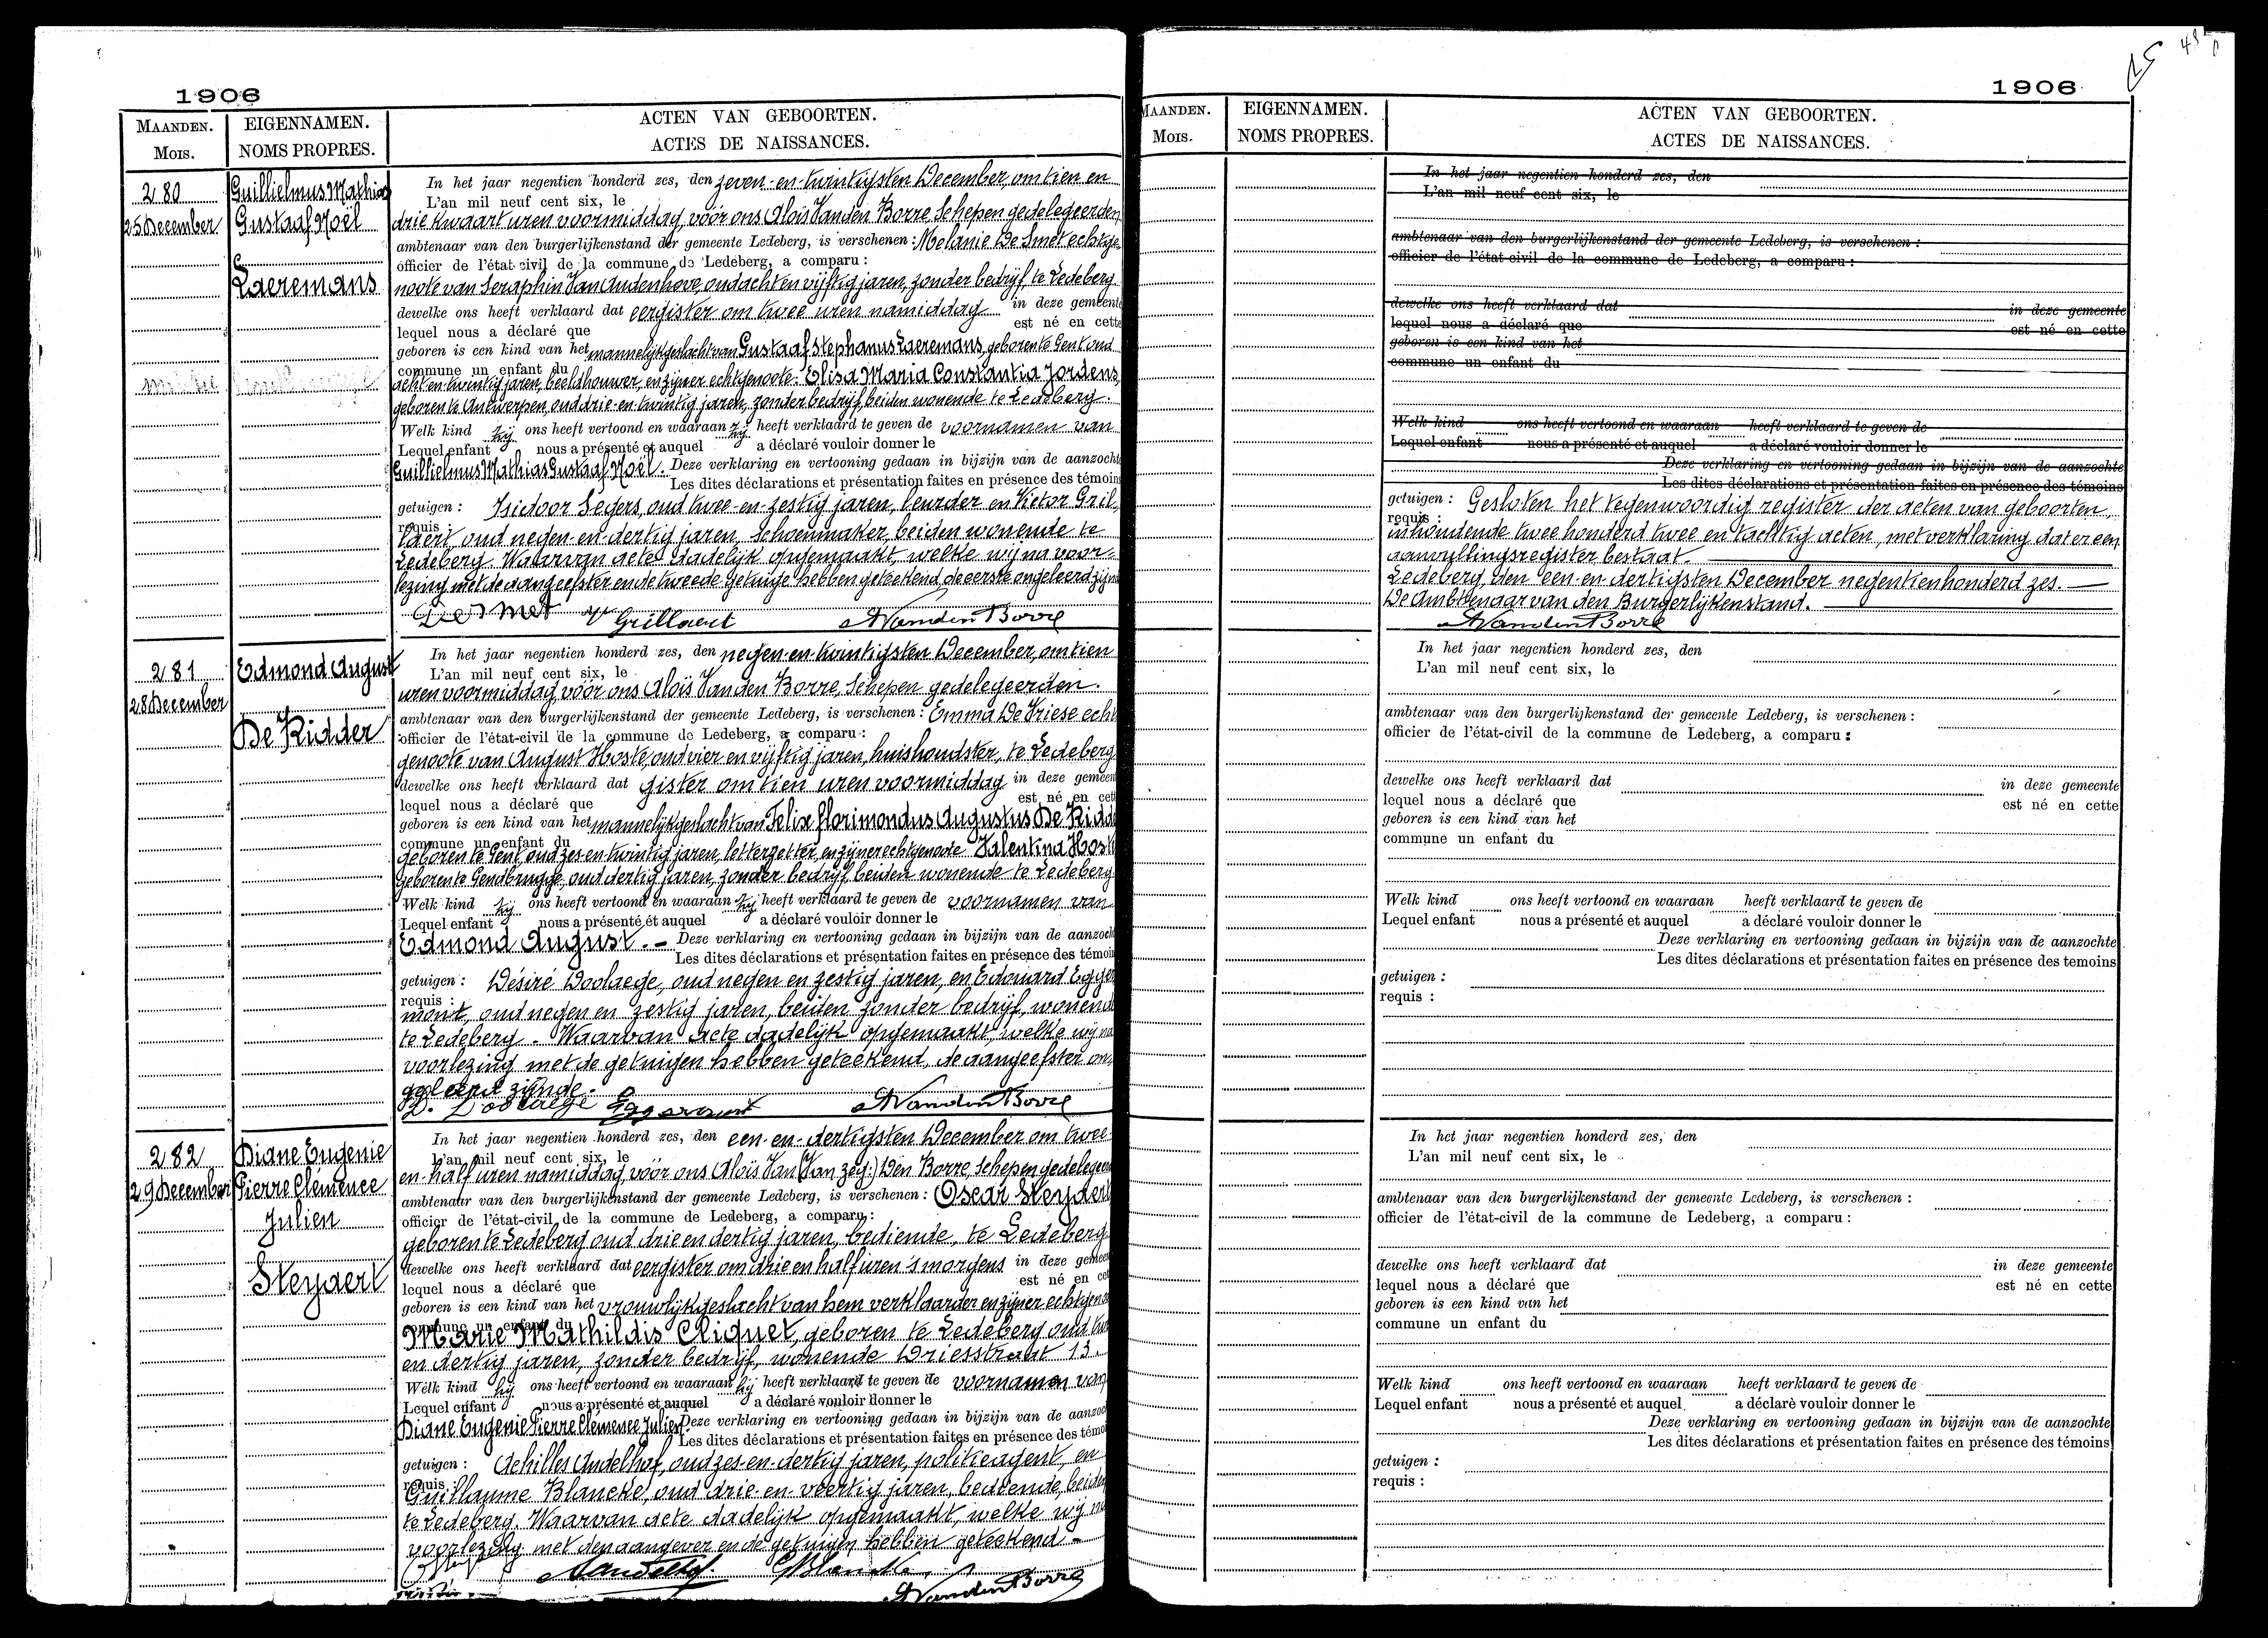 1906
MAANDEN.
MOIS.
EIGENNAMEN.
NOMS PROPRES.
ACTEN VAN GEBOORTEN.
ACTES DE NAISSANCES.
280
25 December
Guillielmus Mathias
Gustaaf Noël
Laeremans
In het jaar negentien honderd zes, den zeven-en-twintigsten December, om tien en
L'an mil neuf cent six, le
drie kwaart uren voormiddag, vóór ons Aloïs Van den Borre, Schepen gedelegeerden
ambtenaar van den burgerlijkenstand der gemeente Ledeberg, is verschenen: Melanie De Smet echtge-
officier de l'état-civil de la commune de Ledeberg, a comparu:
noote van Seraphin Van Audenhove, oud acht en vijftig jaren, zonder bedrijf, te Ledeberg.
dewelke ons heeft verklaard dat eergister om twee uren namiddag in deze gemeente
lequel nous a déclaré que est né en cette
geboren is een kind van het mannelijk geslacht van Gustaaf Stephanus Laeremans, geboren te Gent oud
commune un enfant du
acht-en-twintig jaren, beeldhouwer, en zijner echtgenoote: Elisa Maria Constantia Jordens,
geboren te Antwerpen, oud drie-en-twintig jaren, zonder bedrijf, beiden wonende te Ledeberg.
Welk kind zij ons heeft vertoond en waaraan zij heeft verklaard te geven de voornamen van
Lequel enfant nous a présenté et auquel a déclaré vouloir donner le
Guillielmus Mathias Gustaaf Noël. Deze verklaring en vertooning gedaan in bijzijn van de aanzochte
Les dites déclarations et présentation faites en présence des témoins
getuigen: Isidoor Segers, oud twee-en-zestig jaren, leurder en Victor Gril-
requis:
laert, oud negen-en-dertig jaren, schoenmaker, beiden wonende te
Ledeberg. Waarvan acte dadelijk opgemaakt welke wij na voor-
lezing met de aangeefster en de tweede getuige hebben geteekend, de eerste ongeleerd zijnde
De Smet V Grillaert A Vanden Borre
281
28 December
Edmond August
De Ridder
In het jaar negentien honderd zes, den negen-en-twintigsten December, om tien
L'an mil neuf cent six, le
uren voormiddag, vóór ons Aloïs Van den Borre, Schepen gedelegeerden.
ambtenaar van den burgerlijkenstand der gemeente Ledeberg, is verschenen: Emma De Vriese echt
officier de l'état-civil de la commune de Ledeberg, a comparu:
genoote van August Hoste, oud vier en vijftig jaren, huishoudster, te Ledeberg
dewelke ons heeft verklaard dat gister om tien uren voormiddag in deze gemeen
lequel nous a déclaré que est né en cet
geboren is een kind van het mannelijk geslacht van Felix Florimondus Augustus De Ridde
commune un enfant du
geboren te Gent, oud zes-en-twintig jaren, letterzetter, en zijner echtgenoote Valentina Hoste
geboren te Gendbrugge, oud dertig jaren, zonder bedrijf, beiden wonende te Ledeberg
Welk kind zij ons heeft vertoond en waaraan zij heeft verklaard te geven de voornamen van
Lequel enfant nous a présenté et auquel a déclaré vouloir donner le
Edmond August. - Deze verklaring en vertooning gedaan in bijzijn van de aanzoch
Les dites déclarations et présentation faites en présence des témoin
getuigen: Désiré Doolaege, oud negen en zestig jaren, en Edouard Egger
requis:
mont, oud negen en zestig jaren, beiden zonder bedrijf, wonend
te Ledeberg. Waarvan acte dadelijk opgemaakt, welke wij na
voorlezing met de getuigen hebben geteekend, de aangeefster on-
geleerd zijnde.
D. Doolaege Eggermont A Vanden Borre
282
29 December
Diane Eugenie
Pierre Clémence
Julien
Steyaert
In het jaar negentien honderd zes, den een-en-dertigsten December om twee-
L'an mil neuf cent six, le
en-half uren namiddag, vóór ons Aloïs Van (Van zeg:) Den Borre, Schepen gedelegeer
ambtenaar van den burgerlijkenstand der gemeente Ledeberg, is verschenen: Oscar Steyaert
officier de l'état-civil de la commune de Ledeberg, a comparu:
geboren te Ledeberg oud drie en dertig jaren, bediende, te Ledeberg
dewelke ons heeft verklaard dat eergister om drie en half uren 's morgens in deze gemeen
lequel nous a déclaré que est né en cet
geboren is een kind van het vrouwlijk geslacht van hem verklaarder en zijner echtgenoo
commune un enfant du
Marie Mathildis Cliquet, geboren te Ledeberg oud twee
en dertig jaren, zonder bedrijf, wonende Driesstraat 13.
Welk kind hij ons heeft vertoond en waaraan hij heeft verklaard te geven de voornamen van
Lequel enfant nous a présenté et auquel a déclaré vouloir donner le
Diane Eugenie Pierre Clémence Julien. Deze verklaring en vertooning gedaan in bijzijn van de aanzoc
Les dites déclarations et présentation faites en présence des témo
getuigen: Achilles Andelhof, oud zes-en-dertig jaren, politieagent, en
requis:
Guillaume Blancke, oud drie-en-veertig jaren, bediende, beiden
te Ledeberg. Waarvan acte dadelijk opgemaakt, welke wij na
voorlezing met den aangever en de getuigen hebben geteekend.-
Andelhof. G Blancke A Vanden Borre
1906
MAANDEN.
MOIS.
EIGENNAMEN.
NOMS PROPRES.
ACTEN VAN GEBOORTEN.
ACTES DE NAISSANCES.
In het jaar negentien honderd zes, den
L'an mil neuf cent six, le
ambtenaar van den burgerlijkenstand der gemeente Ledeberg, is verschenen:
officier de l'état-civil de la commune de Ledeberg, a comparu:
dewelke ons heeft verklaard dat in deze gemeente
lequel nous a déclaré que est né en cette
geboren is een kind van het
commune un enfant du
Welk kind ons heeft vertoond en waaraan heeft verklaard te geven de
Lequel enfant nous a présenté et auquel a déclaré vouloir donner le
Deze verklaring en vertooning gedaan in bijzijn van de aanzochte
Les dites déclarations et présentation faites en présence des témoins
getuigen: Gesloten het tegenwoordig register der acten van geboorten,
requis:
inhoudende twee honderd twee en tachtig acten, met verklaring dat er een
aanvullingsregister bestaat.
Ledeberg, den een-en-dertigsten December negentienhonderd zes.
De Ambtenaar van den Burgerlijkenstand.
A Vanden Borre
In het jaar negentien honderd zes, den
L'an mil neuf cent six, le
ambtenaar van den burgerlijkenstand der gemeente Ledeberg, is verschenen:
officier de l'état-civil de la commune de Ledeberg, a comparu:
dewelke ons heeft verklaard dat in deze gemeente
lequel nous a déclaré que est né en cette
geboren is een kind van het
commune un enfant du
Welk kind ons heeft vertoond en waaraan heeft verklaard te geven de
Lequel enfant nous a présenté et auquel a déclaré vouloir donner le
Deze verklaring en vertooning gedaan in bijzijn van de aanzochte
Les dites déclarations et présentation faites en présence des temoins
getuigen:
requis:
In het jaar negentien honderd zes, den
L'an mil neuf cent six, le
ambtenaar van den burgerlijkenstand der gemeente Ledeberg, is verschenen:
officier de l'état-civil de la commune de Ledeberg, a comparu:
dewelke ons heeft verklaard dat in deze gemeente
lequel nous a déclaré que est né en cette
geboren is een kind van het
commune un enfant du
Welk kind ons heeft vertoond en waaraan heeft verklaard te geven de
Lequel enfant nous a présenté et auquel a déclarè vouloir donner le
Deze verklaring en vertooning gedaan in bijzijn van de aanzochte
Les dites déclarations et présentation faites en présence des témoins
getuigen:
requis: